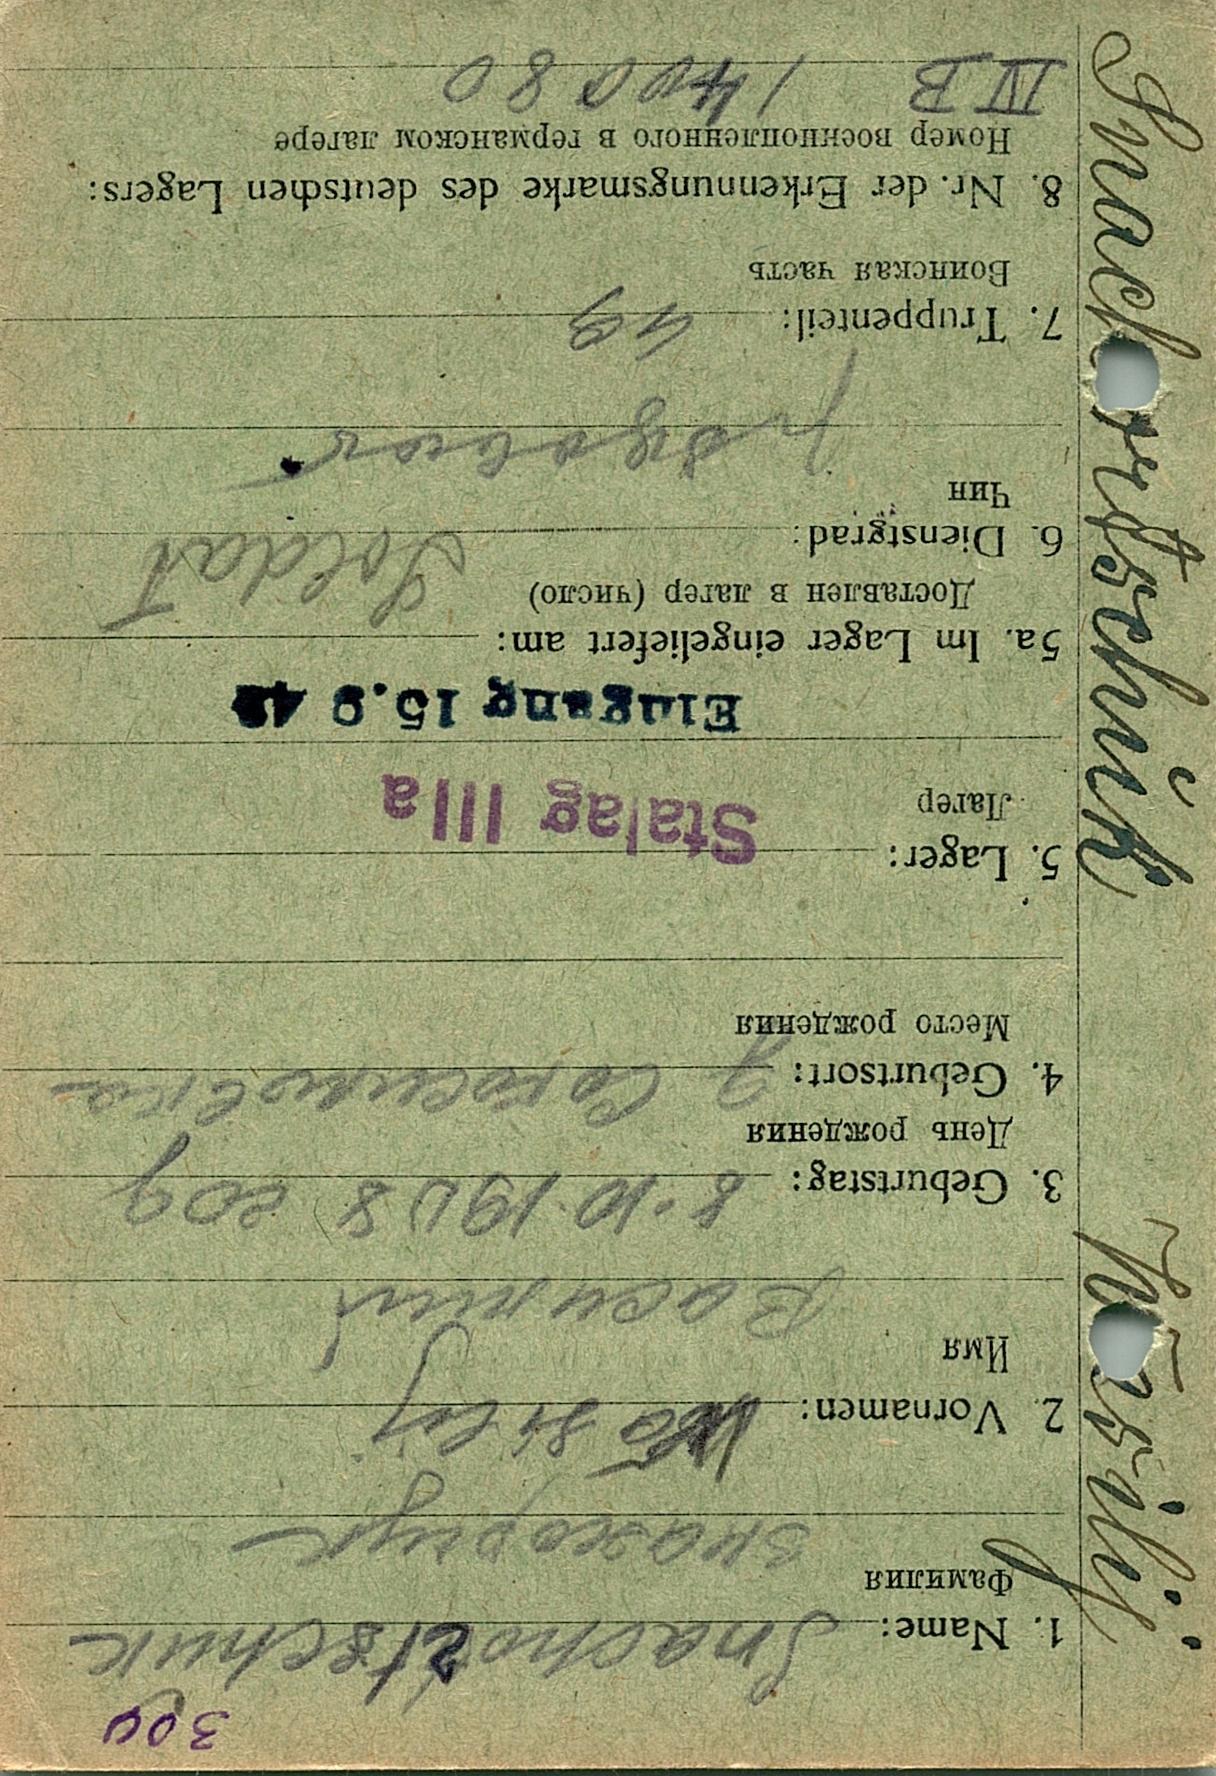 300
1. Name: Snachortschuk
Фамилия знахорчук
2. Vornamen: Wasilij
Имя Василий
3. Geburtstag: 8.10.1908
День рождения
4. Geburtsort:
Место рождения
5. Lager: Stalag IIIa
Лагер
Eingang 15.9 42
5a. Im Lager eingeliefert am:
Доставлен в лагер (число)
6. Dienstgrad: Soldat
Чин
рядовой
7. Truppenteil: 49
Воинская часть
8. Nr. der Erkennungsmarke des deutschen Lagers:
Номер военнопленного в германском лагере
IV B 140080
Snachortschuk Wasilij